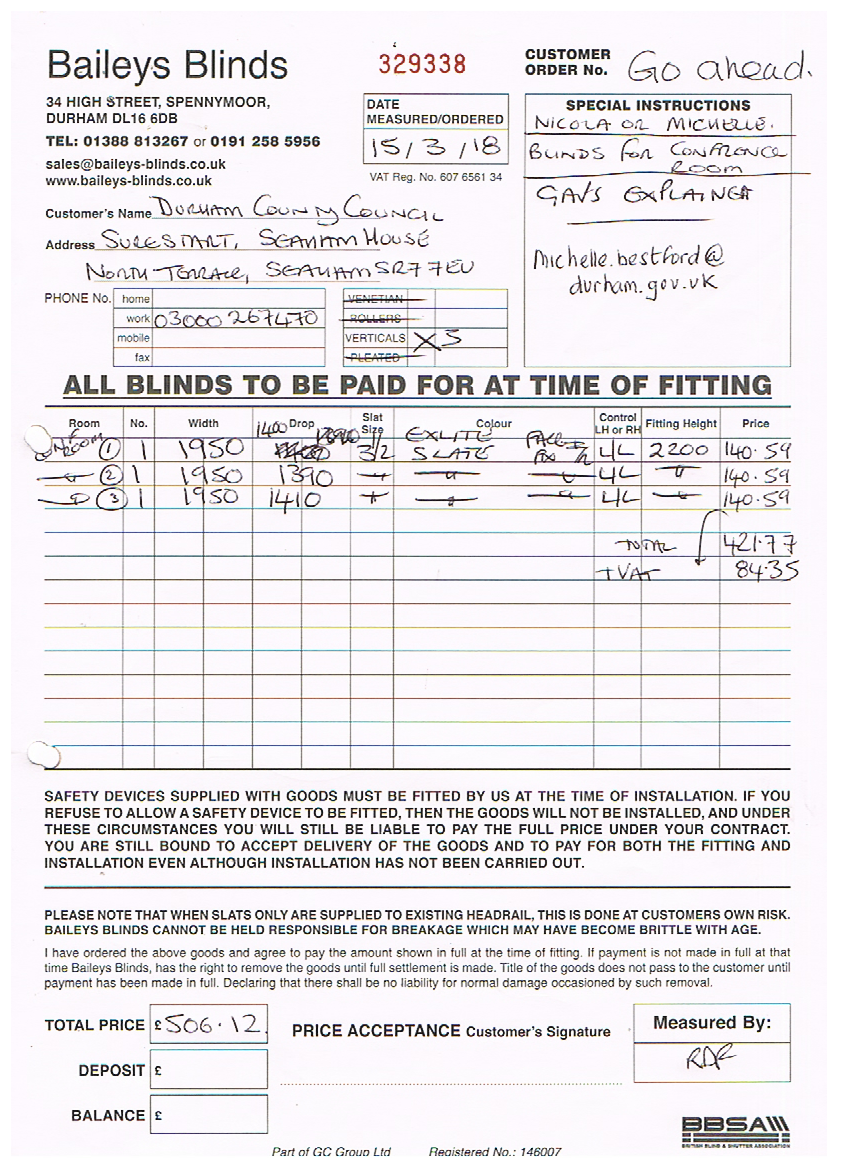 Baileys Blinds
329338
CUSTOMER ORDER No. Go ahead.
34 HIGH STREET, SPENNYMOOR,
DURHAM DL16 6DB
TEL: 01388 813267 or 0191 258 5956
sales@baileys-blinds.co.uk
www.baileys-blinds.co.uk
DATE
MEASURED/ORDERED
15/3/18
VAT Reg. No. 607 6561 34
SPECIAL INSTRUCTIONS
NICOLA OR MICHELLE.
BLINDS FOR CONFERENCE
ROOM
GAVS EXPLAINED
Michelle.bestford@
durham.gov.uk
Customer's Name DURHAM COUNTY COUNCIL
Address SURESTART, SEAHAM HOUSE
NORTH TERRACE, SEAHAM SR7 7EU
PHONE No. home
work 03000 267470
mobile
fax
VENETIAN
ROLLERS
VERTICALS X3
PLEATED
ALL BLINDS TO BE PAID FOR AT TIME OF FITTING
Room No. Width Drop Slat Size Colour Control LH or RH Fitting Height Price
ROOM 1 1 1950 1400 3 1/2 EXLITE SLATE FACE FIX L/L 2200 140.59
" 2 1 1950 1390 " " " L/L " 140.59
" 3 1 1950 1410 " " " L/L " 140.59
TOTAL 421.77
+ VAT 84.35
SAFETY DEVICES SUPPLIED WITH GOODS MUST BE FITTED BY US AT THE TIME OF INSTALLATION. IF YOU
REFUSE TO ALLOW A SAFETY DEVICE TO BE FITTED, THEN THE GOODS WILL NOT BE INSTALLED, AND UNDER
THESE CIRCUMSTANCES YOU WILL STILL BE LIABLE TO PAY THE FULL PRICE UNDER YOUR CONTRACT.
YOU ARE STILL BOUND TO ACCEPT DELIVERY OF THE GOODS AND TO PAY FOR BOTH THE FITTING AND
INSTALLATION EVEN ALTHOUGH INSTALLATION HAS NOT BEEN CARRIED OUT.
PLEASE NOTE THAT WHEN SLATS ONLY ARE SUPPLIED TO EXISTING HEADRAIL, THIS IS DONE AT CUSTOMERS OWN RISK.
BAILEYS BLINDS CANNOT BE HELD RESPONSIBLE FOR BREAKAGE WHICH MAY HAVE BECOME BRITTLE WITH AGE.
I have ordered the above goods and agree to pay the amount shown in full at the time of fitting. If payment is not made in full at that
time Baileys Blinds, has the right to remove the goods until full settlement is made. Title of the goods does not pass to the customer until
payment has been made in full. Declaring that there shall be no liability for normal damage occasioned by such removal.
TOTAL PRICE £506.12
PRICE ACCEPTANCE Customer's Signature
Measured By:
RDR
DEPOSIT £
BALANCE £
BBSA
BRITISH BLIND & SHUTTER ASSOCIATION
Part of GC Group Ltd Registered No.: 146007